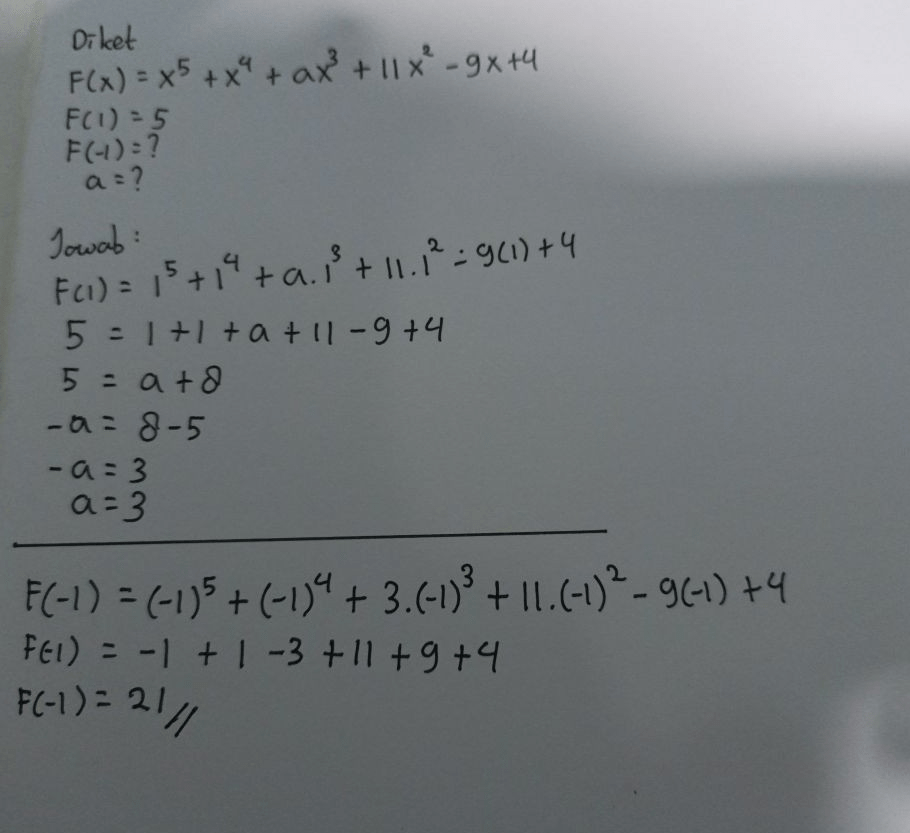 Diket
F(x) = x⁵ + x⁴ + ax³ + 11x² - 9x+4
F(1) = 5
F(-1) = ?
a = ?
Jawab :
F(1) = 1⁵ + 1⁴ + a.1³ + 11.1² - 9(1) + 4
5 = 1 + 1 + a + 11 - 9 + 4
5 = a + 8
-a = 8-5
-a = 3
a = 3
F(-1) = (-1)⁵ + (-1)⁴ + 3.(-1)³ + 11.(-1)² - 9(-1) + 4
F(-1) = -1 + 1 - 3 + 11 + 9 + 4
F(-1) = 21//